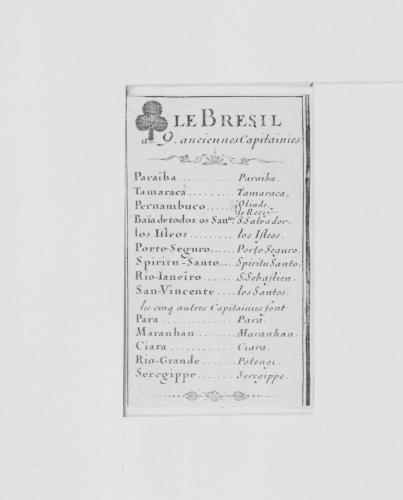 LE BRESIL
a 9. anciennes Capitainies.
Paraiba .......... Paraiba.
Tamaraca ......... Tamaraca.
Pernambuco ..... Olinde.
le Recif
Baia de todos os San^os. S. Salvador.
los Isleos ......... los Isleos.
Porto Seguro ..... Porto Seguro.
Spiritu-Santo ... Spiritu Santo.
Rio-Ianeiro ...... S. Sebastien.
San-Vincente .... los Santos.
les cinq autres Capitainies sont
Para ............... Para.
Maranhan ....... Maranhan.
Ciara ............. Ciara.
Rio-Grande ...... Potengi.
Seregippe ........ Seregippe.